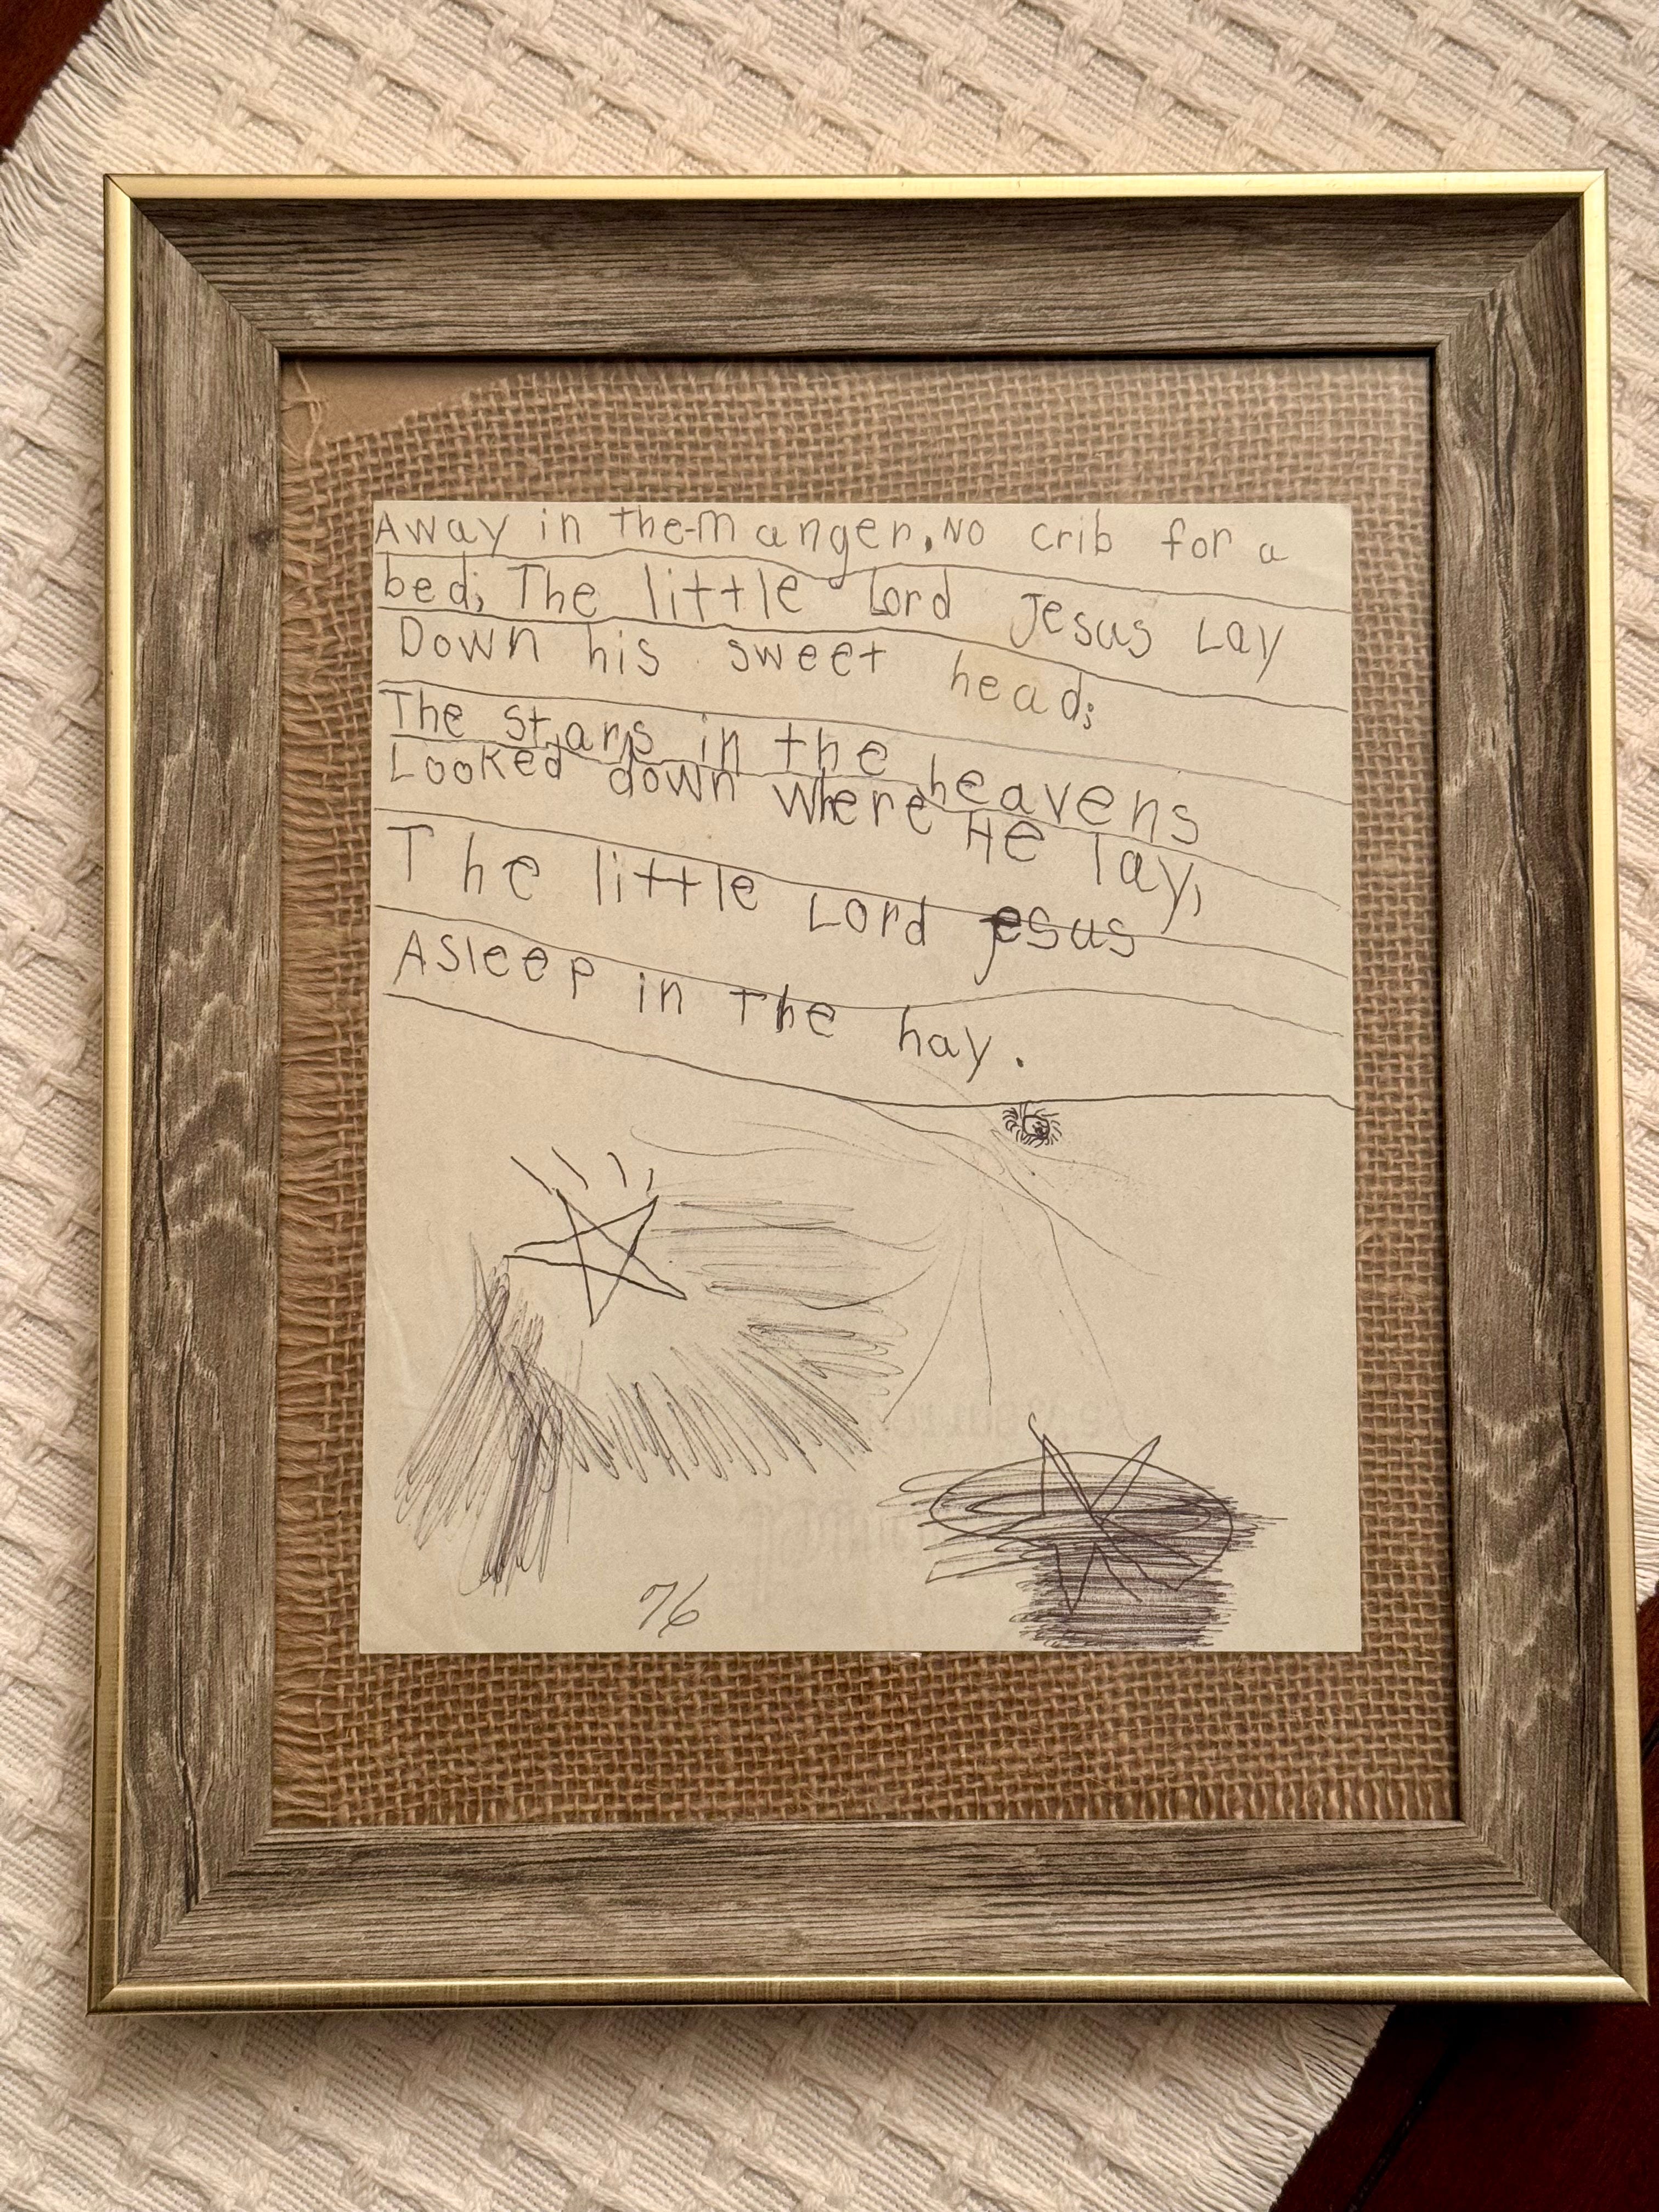 Away in The-Manger, No crib for a
bed; The little Lord Jesus Lay
Down his sweet head;
The stars in the heavens
Looked down where He lay,
The little Lord jesus
Asleep in The hay.
76